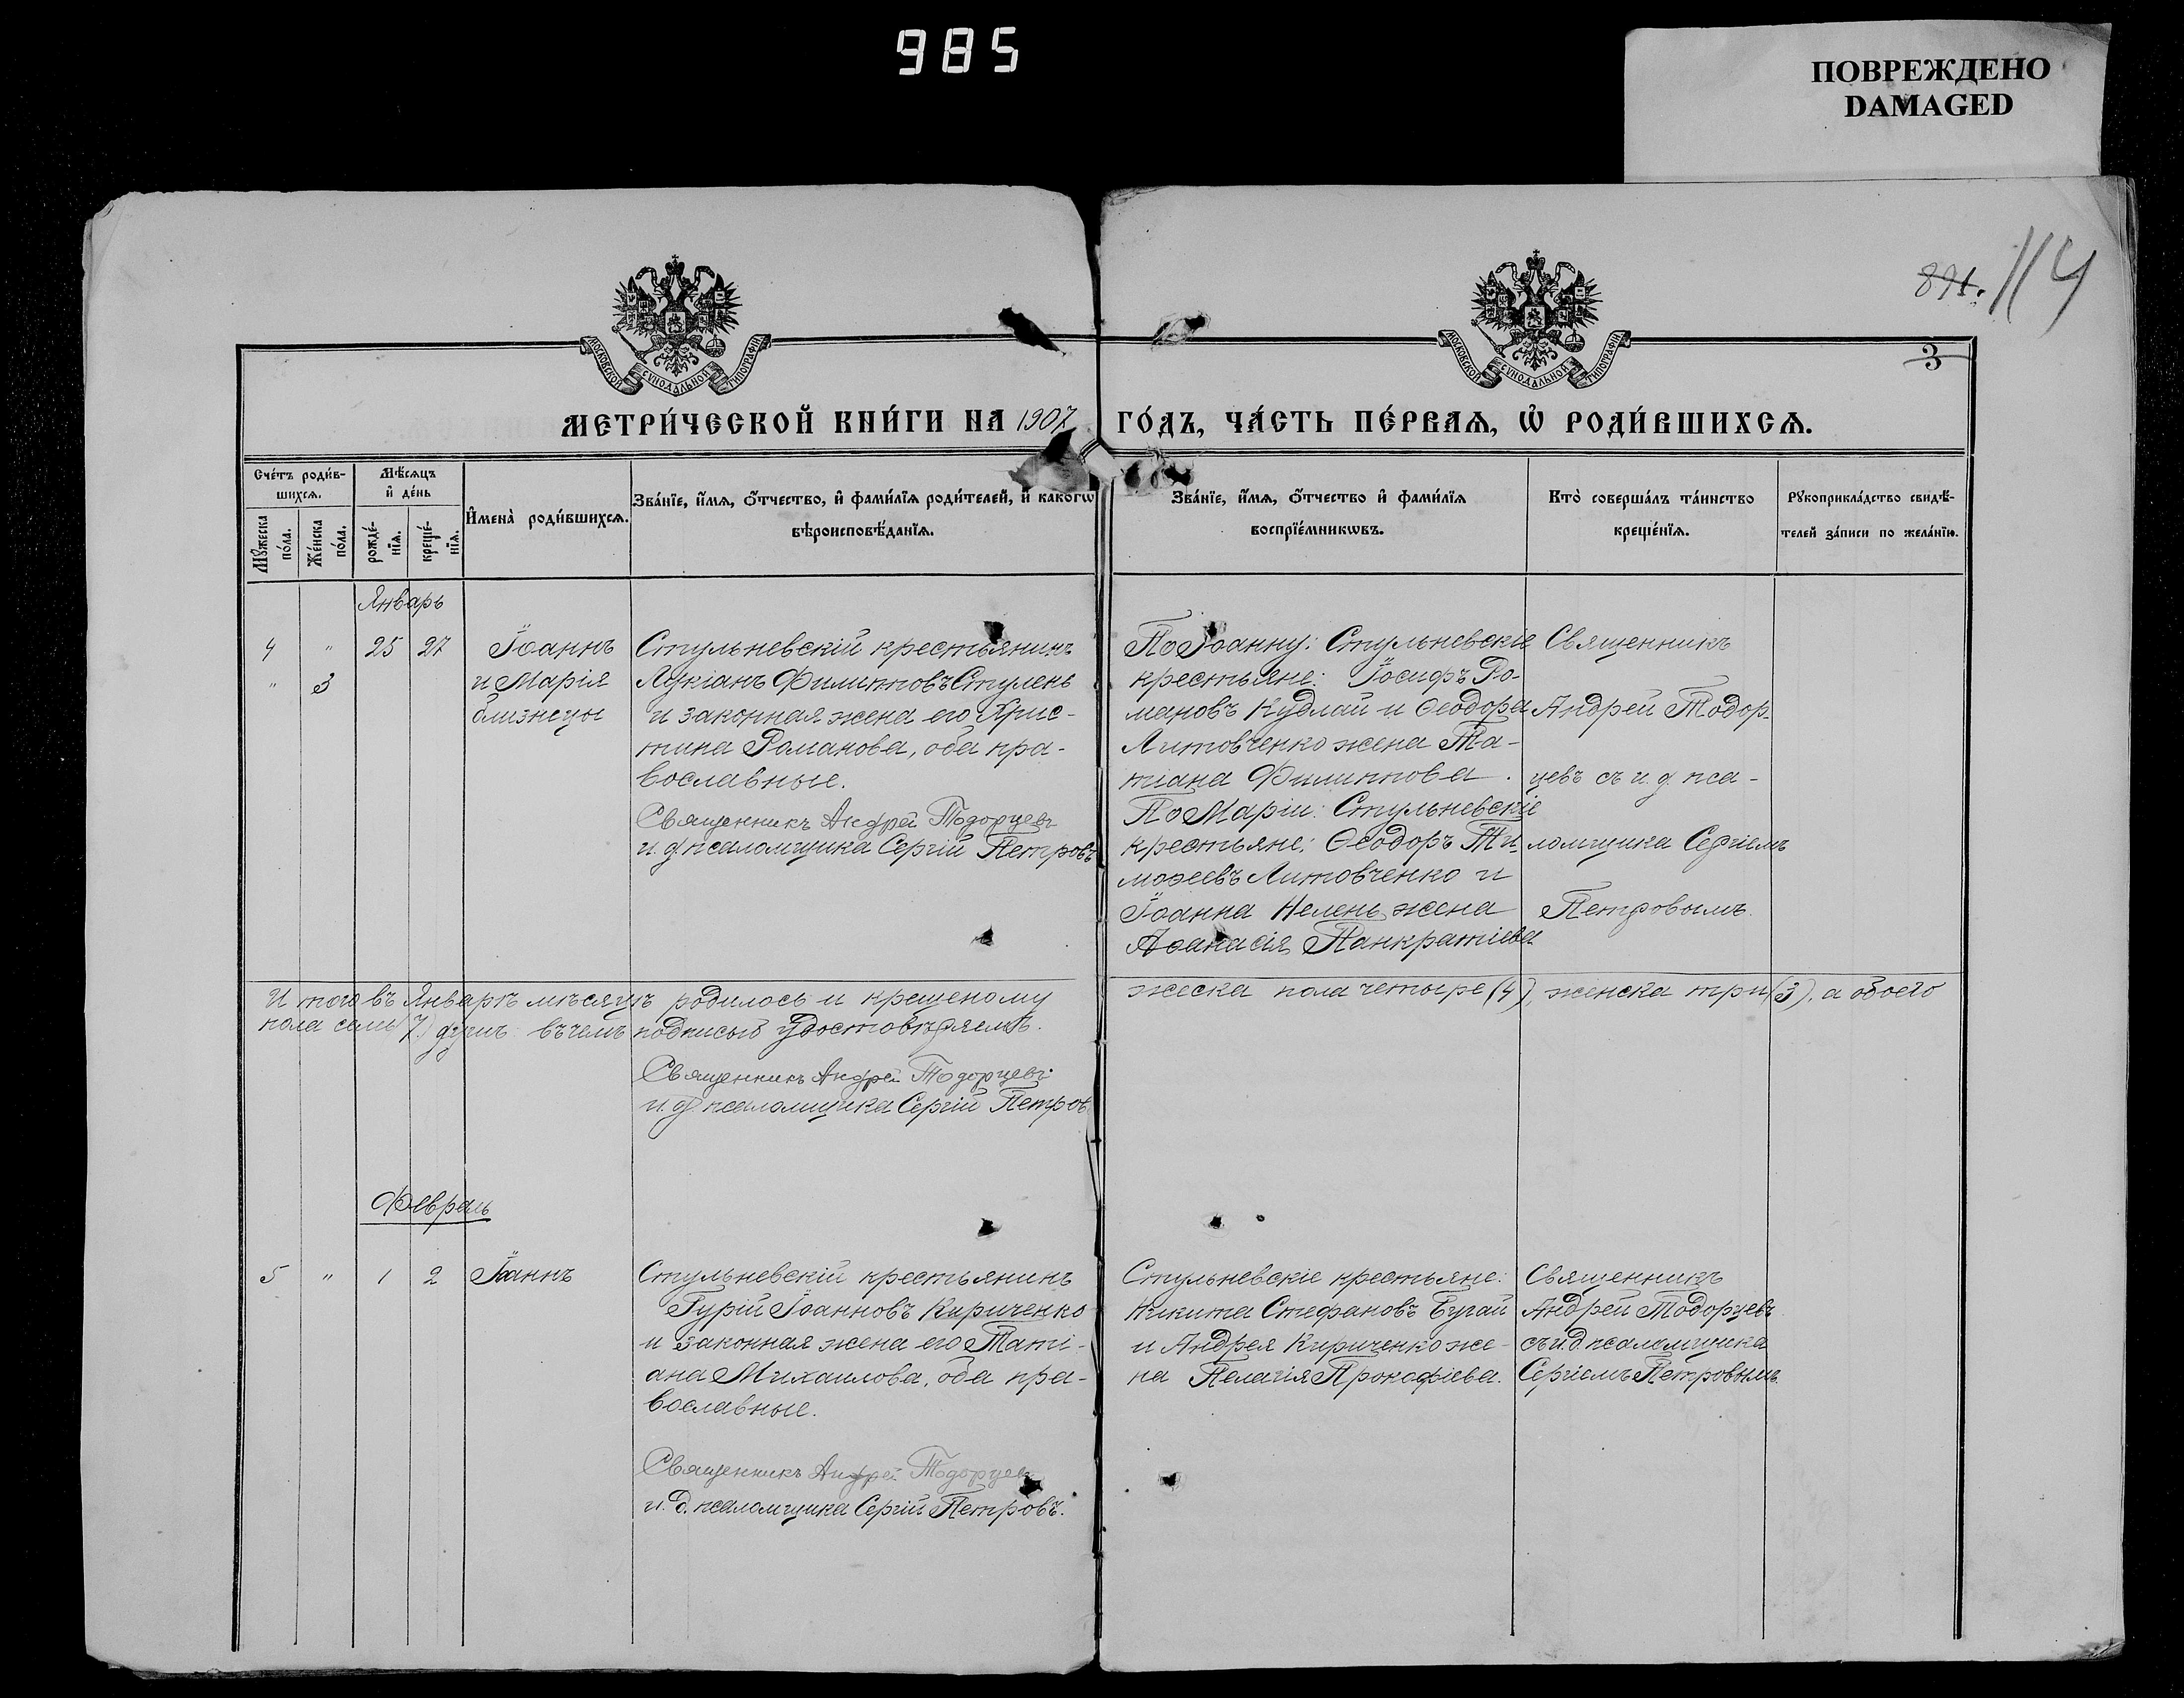 985
ПОВРЕЖДЕНО
DAMAGED
114
3
МОСКОВСКОЙ СУНОДАЛЬНОЙ ТИПОГРАФІИ
МОСКОВСКОЙ СУНОДАЛЬНОЙ ТИПОГРАФІИ
МЕТРИ́ЧЕСКОЙ КНИ́ГИ НА 1907 ГО́ДЪ, ЧА́СТЬ ПЕ́РВАѦ, Ѽ РОДИ́ВШИХСѦ.
Сче́тъ роди́в-
шихсѧ.
Мꙋ́жеска
по́ла.
Же́нска
по́ла.
Мѣ́сѧцъ
и҆ де́нь
рожде́-
нїѧ.
креще́-
нїѧ.
И҆мена̀ роди́вшихсѧ.
Зва́нїе, и҆́мѧ, ѻ҆́тчество, и҆ фами́лїѧ роди́телей, и҆ како́гѡ
вѣроисповѣ́данїѧ.
Зва́нїе, и҆́мѧ, ѻ҆́тчество и҆ фами́лїѧ
воспрїе́мникѡвъ.
Кто̀ соверша́лъ та́инство
креще́нїѧ.
Рꙋкоприкла́дство свидѣ́-
телей за́писи по жела́нїю.
Январь
4 " 25 27
" 3
Іоаннъ
и Марія
близнецы
Стульневскій крестьянинъ
Лукіанъ Филипповъ Стулень
и законная жена его Хрис-
тина Романова, оба пра-
вославные.
Священникъ Андрей Тодорцевъ
и. д. псаломщика Сергій Петровъ
По Іоанну: Стульневскіе
крестьяне: Іосифъ Ро-
мановъ Кудлай и Ѳеодора
Литовченко жена Та-
тіана Филиппова.
По Маріи: Стульневскіе
крестьяне: Ѳеодоръ Ти-
моѳеевъ Литовченко и
Іоанна Нелень жена
Аѳанасія Панкратіева
Священникъ
Андрей Тодор-
цевъ съ и. д. пса-
ломщика Сергіемъ
Петровымъ.
Итого въ Январѣ мѣсяцѣ родилось и крещеному жеска пола четыре (4), женска три (3), а обоего
пола семь (7) душъ въ чемъ подписью удостовѣряемъ.
Священникъ Андрей Тодорцевъ
и. д. псаломщика Сергій Петровъ
Февраль
5 " 1 2 Іоаннъ
Стульневскій крестьянинъ
Гурій Іоанновъ Кириченко
и законная жена его Тати-
ана Михаилова, оба пра-
вославные.
Священникъ Андрей Тодорцевъ
и. д. псаломщика Сергій Петровъ.
Стульневскіе крестьяне:
Никита Стефановъ Бугай
и Андрея Кириченко же-
на Пелагія Прокофіева.
Священникъ
Андрей Тодорцевъ
съ и. д. псаломщика
Сергіемъ Петровымъ.